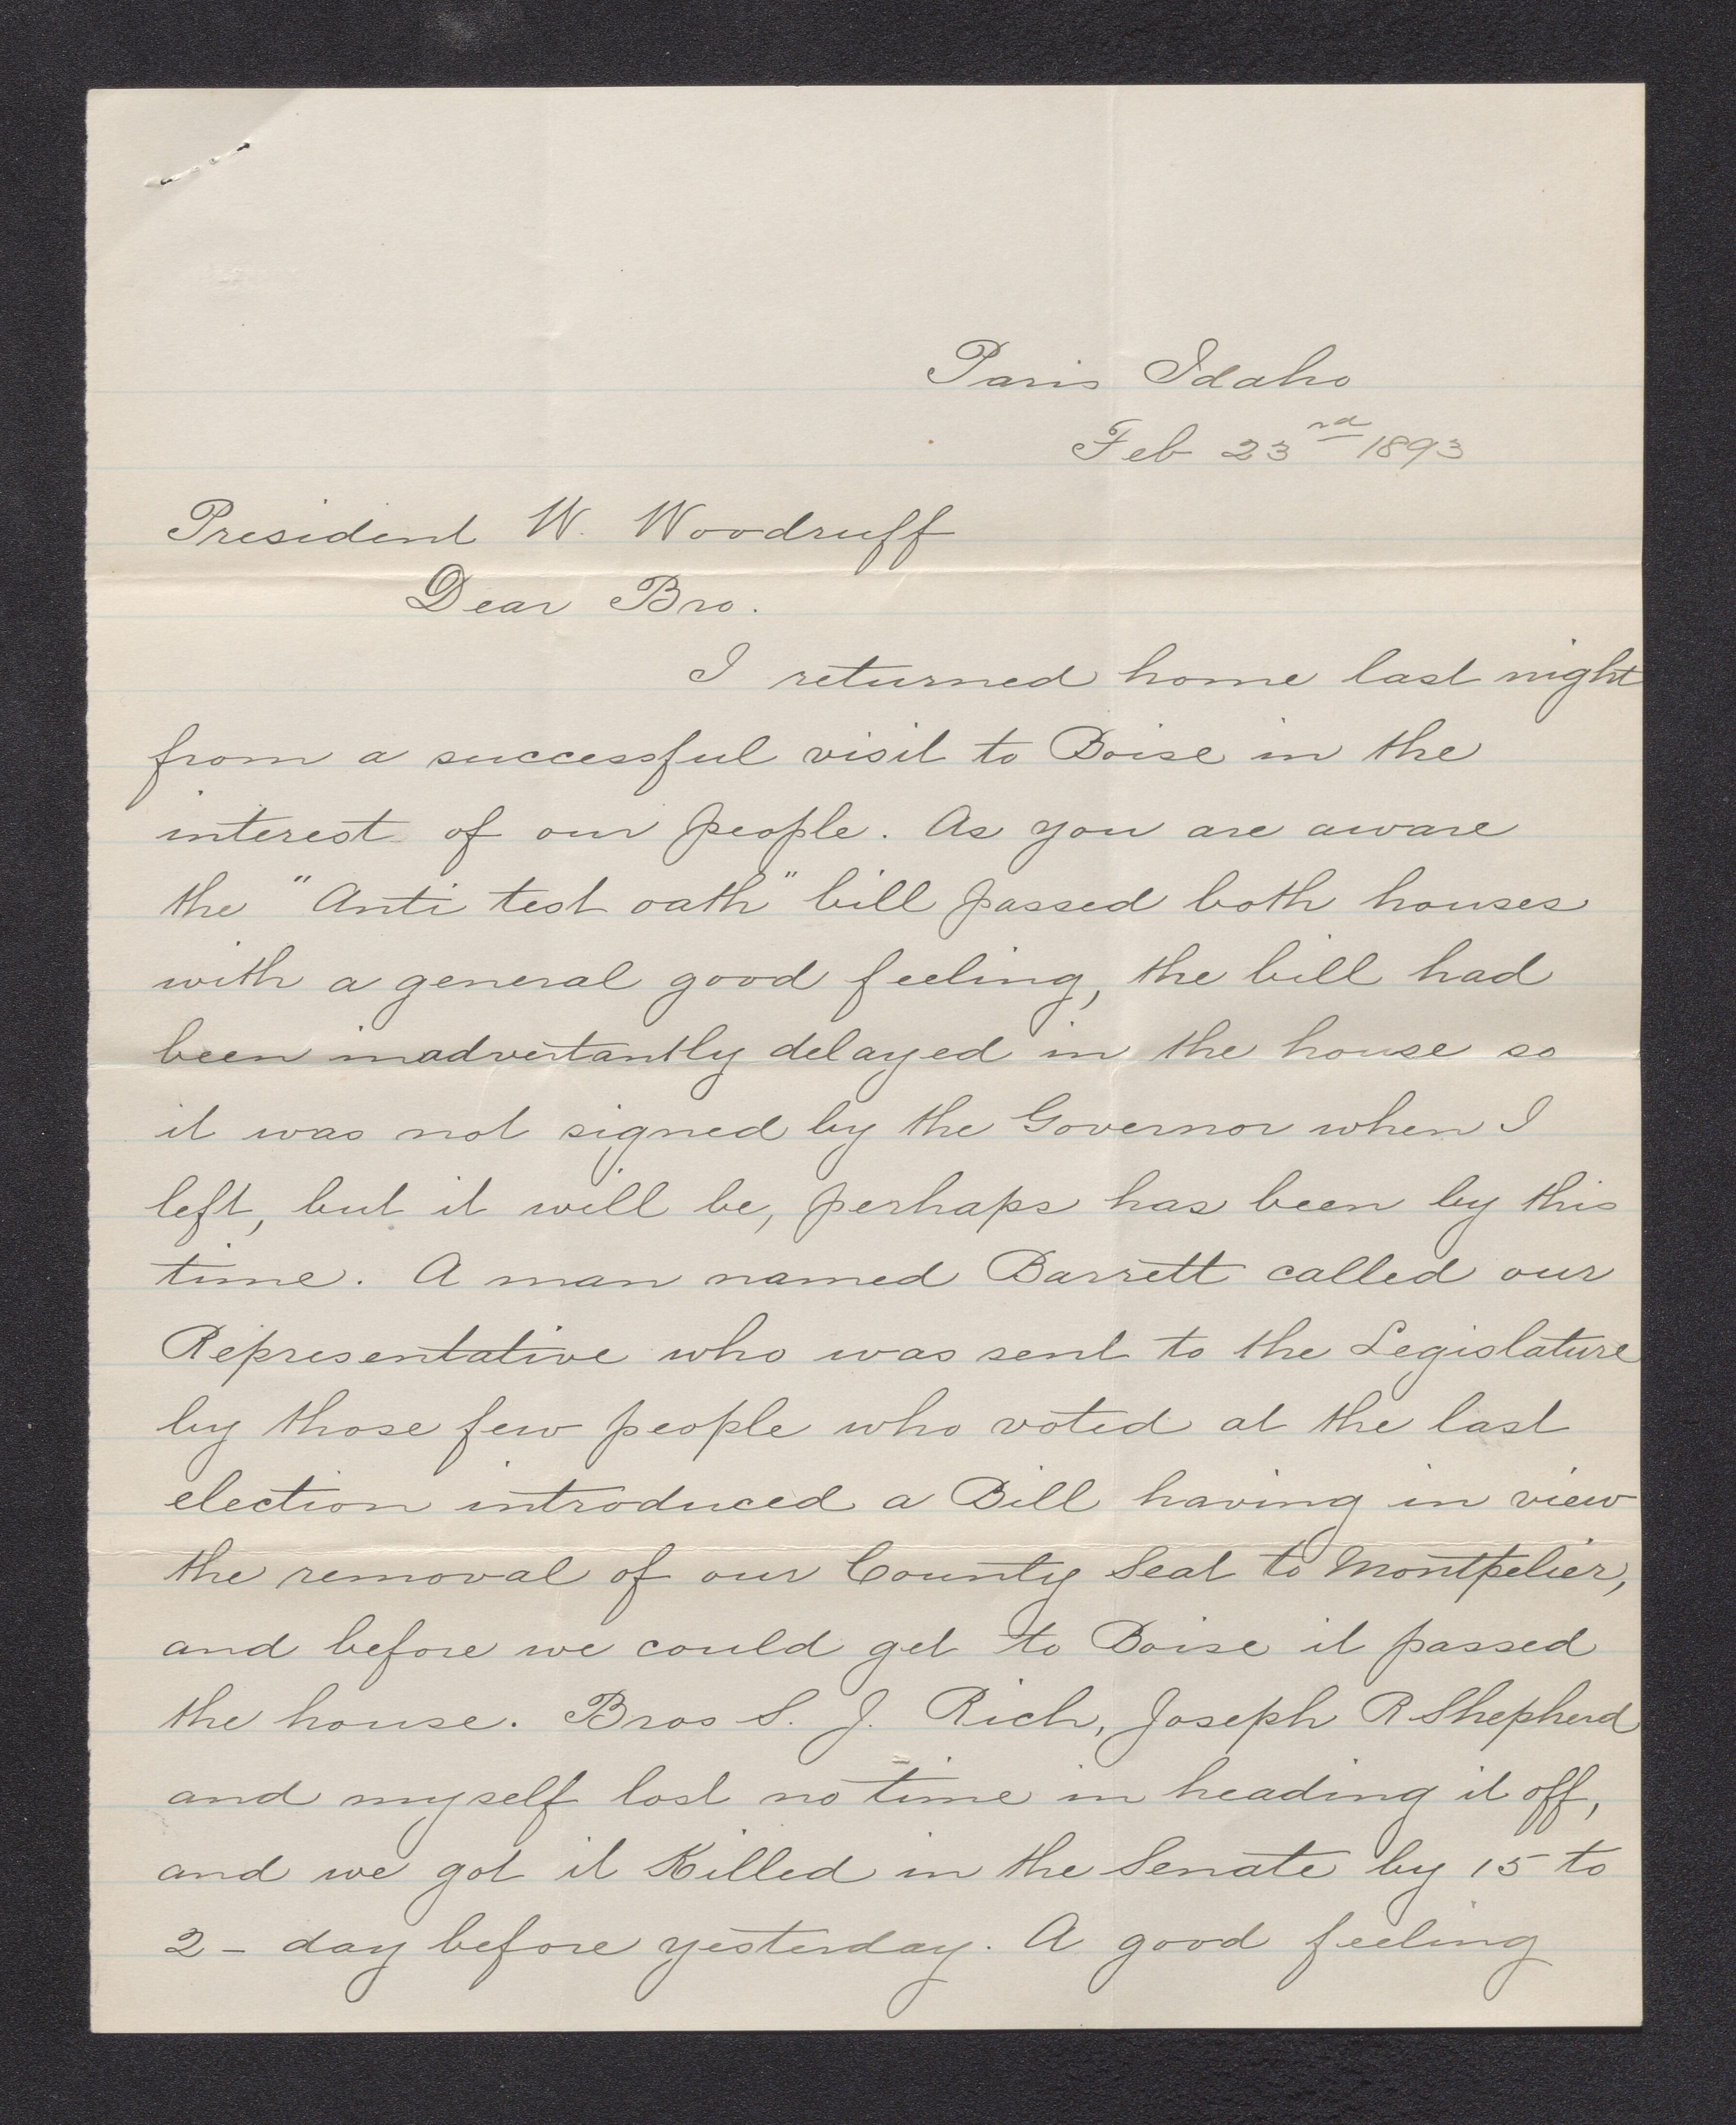 Paris Idaho
Feb 23rd 1893
President W. Woodruff
Dear Bro.
I returned home last night
from a successful visit to Boise in the
interest of our people. As you are aware
the "Anti test oath" bill passed both houses
with a general good feeling, the bill had
been inadvertantly delayed in the house so
it was not signed by the Governor when I
left, but it will be, perhaps has been by this
time. A man named Barrett called our
Representative who was sent to the Legislature
by those few people who voted at the last
election introduced a Bill having in view
the removal of our County Seat to Montpelier,
and before we could get to Boise it passed
the house. Bros S. J. Rich, Joseph R Shepherd
and myself lost no time in heading it off,
and we got it Killed in the Senate by 15 to
2 - day before yesterday. A good feeling